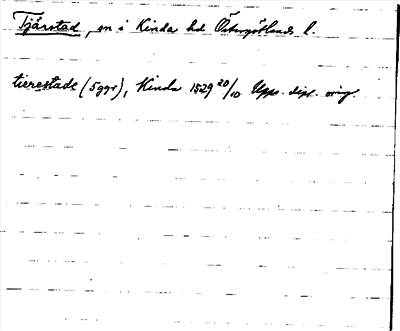 Tjärstad, sn i Kinda hd Östergötlands l.
tierestade (5 ggr), Kinda 1529 20/10 Upps. dipl. orig.